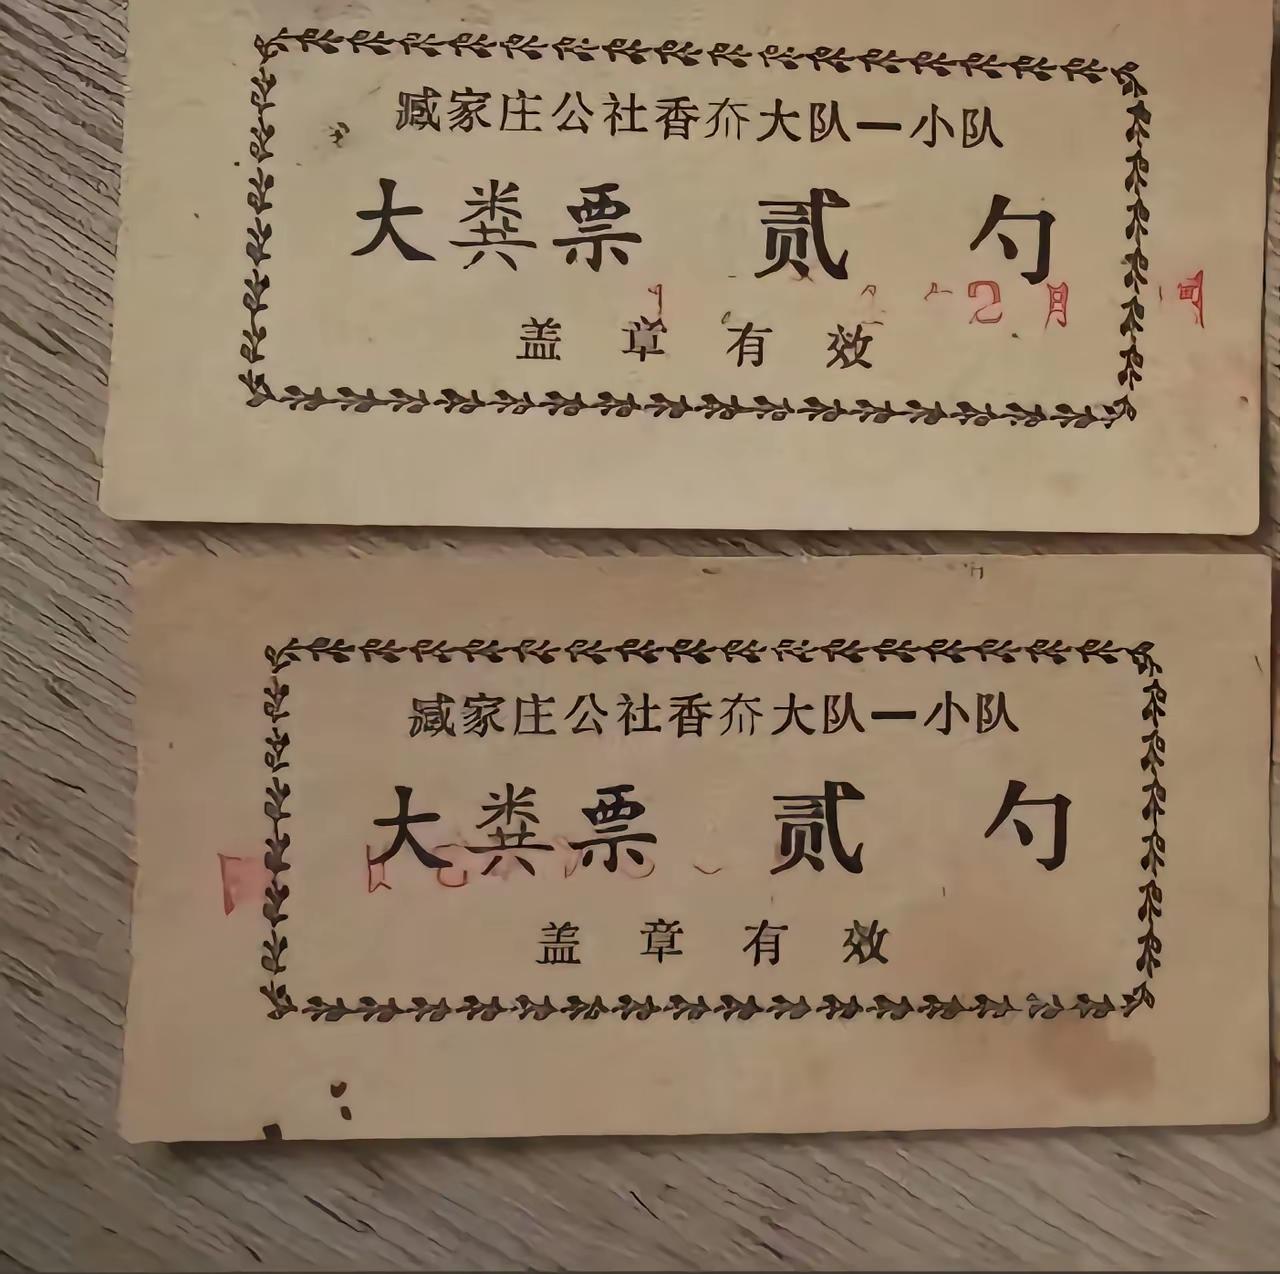 臧家庄公社香夼大队一小队
大粪票 贰 勺
2月
盖 章 有 效
臧家庄公社香夼大队一小队
大粪票 贰 勺
盖 章 有 效